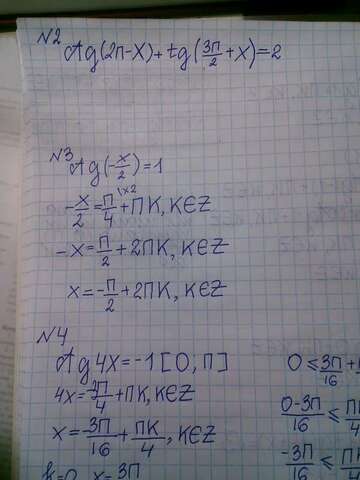 N2
ctg(2π-x)+tg(3π/2+x)=2
N3
ctg(-x/2)=1
-x/2=π/4+πK, K∈Z
\x2
-x=π/2+2πK, K∈Z
x=-π/2+2πK, K∈Z
N4
ctg4x=-1 [0, π]
4x=3π/4+πK, K∈Z
x=3π/16+πK/4, K∈Z
k=0, x=3π
0≤3π/16+
0-3π/16≤πK
-3π/16≤πK